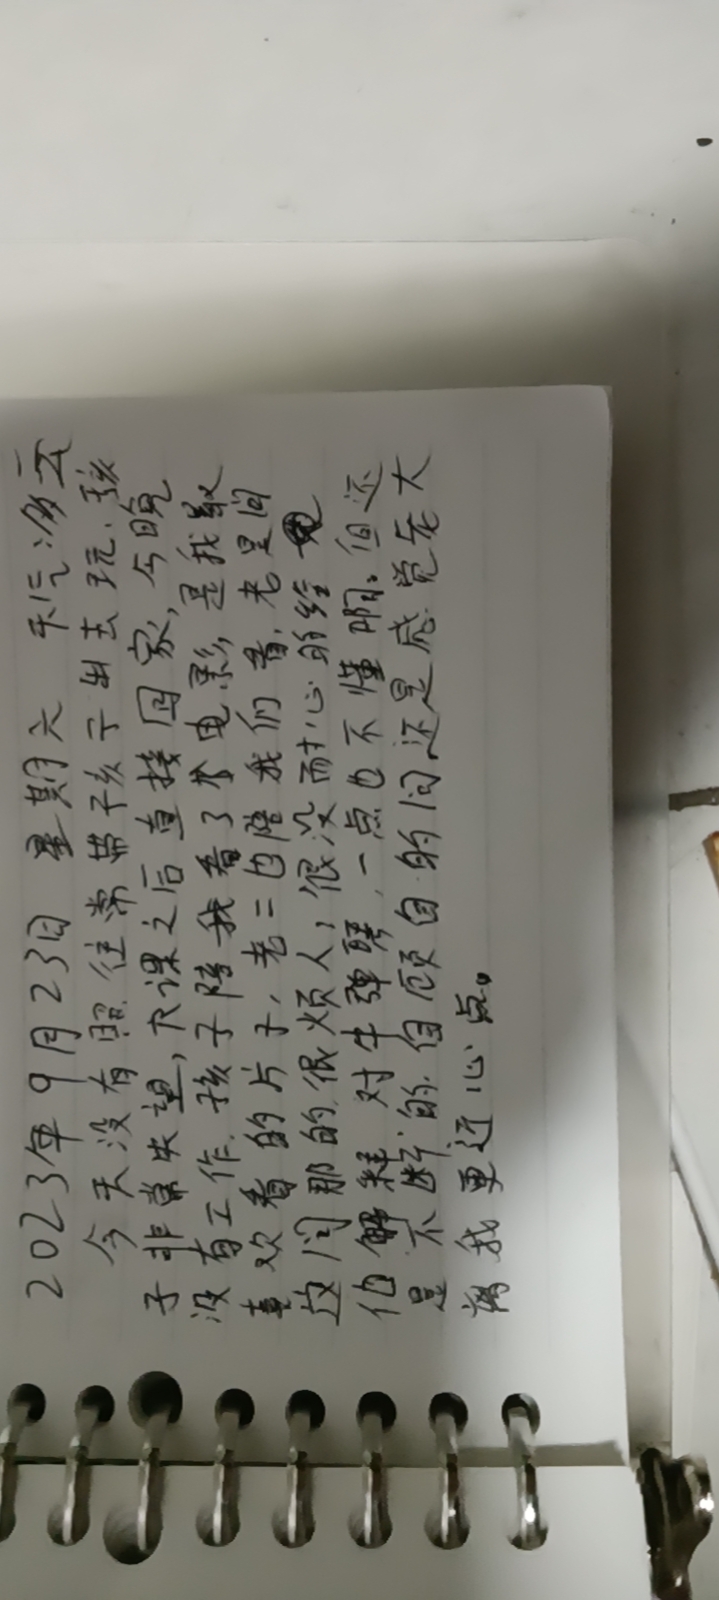 2023年9月23日 星期六 天气:多云
今天没有照往常带孩子出去玩、孩
子非常失望,下课之后直接回家,今晚
没有工作.孩子陪我看了个电影,是我最
喜欢看的片子,老二也陪我们看,老是问
这问那的.很烦人,很没耐心的给
他解释,对牛弹琴,一点也不懂啊。但还
是不断的.自顾自的问还是感觉老大
离我更近心点。